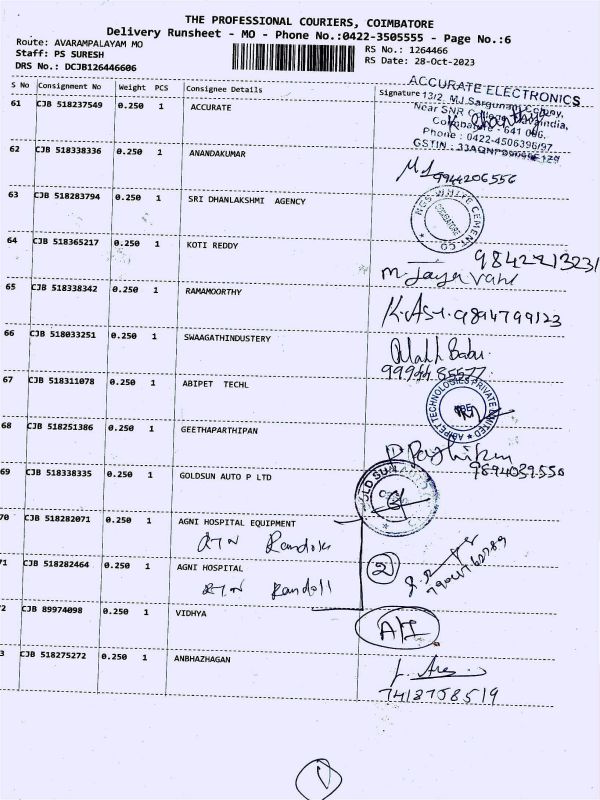 THE PROFESSIONAL COURIERS, COIMBATORE
Delivery Runsheet - MO - Phone No.:0422-3505555 - Page No.:6
Route: AVARAMPALAYAM MO
RS No.: 1264466
Staff: PS SURESH
RS Date: 28-Oct-2023
DRS No.: DCJB126446606
S No Consignment No Weight PCS Consignee Details Signature
ACCURATE ELECTRONICS
13/2, MJ Sargunam Colony,
Near SNR
641 006,
Phone : 0422-4506396/97
GSTIN :
61 CJB 518237549 0.250 1 ACCURATE
62 CJB 518338336 0.250 1 ANANDAKUMAR
9944206556
63 CJB 518283794 0.250 1 SRI DHANLAKSHMI AGENCY
WHITE CEMENT CO
COIMBATORE
64 CJB 518365217 0.250 1 KOTI REDDY
9842213231
65 CJB 518338342 0.250 1 RAMAMOORTHY
9894799123
66 CJB 518033251 0.250 1 SWAAGATHINDUSTERY
Babu
67 CJB 518311078 0.250 1 ABIPET TECHL
ABIPET TECHNOLOGIES PRIVATE LIMITED
68 CJB 518251386 0.250 1 GEETHAPARTHIPAN
9894039550
69 CJB 518338335 0.250 1 GOLDSUN AUTO P LTD
OLD SUN AUTO
70 CJB 518282071 0.250 1 AGNI HOSPITAL EQUIPMENT
71 CJB 518282464 0.250 1 AGNI HOSPITAL
2
72 CJB 89974098 0.250 1 VIDHYA
73 CJB 518275272 0.250 1 ANBHAZHAGAN
7418758519